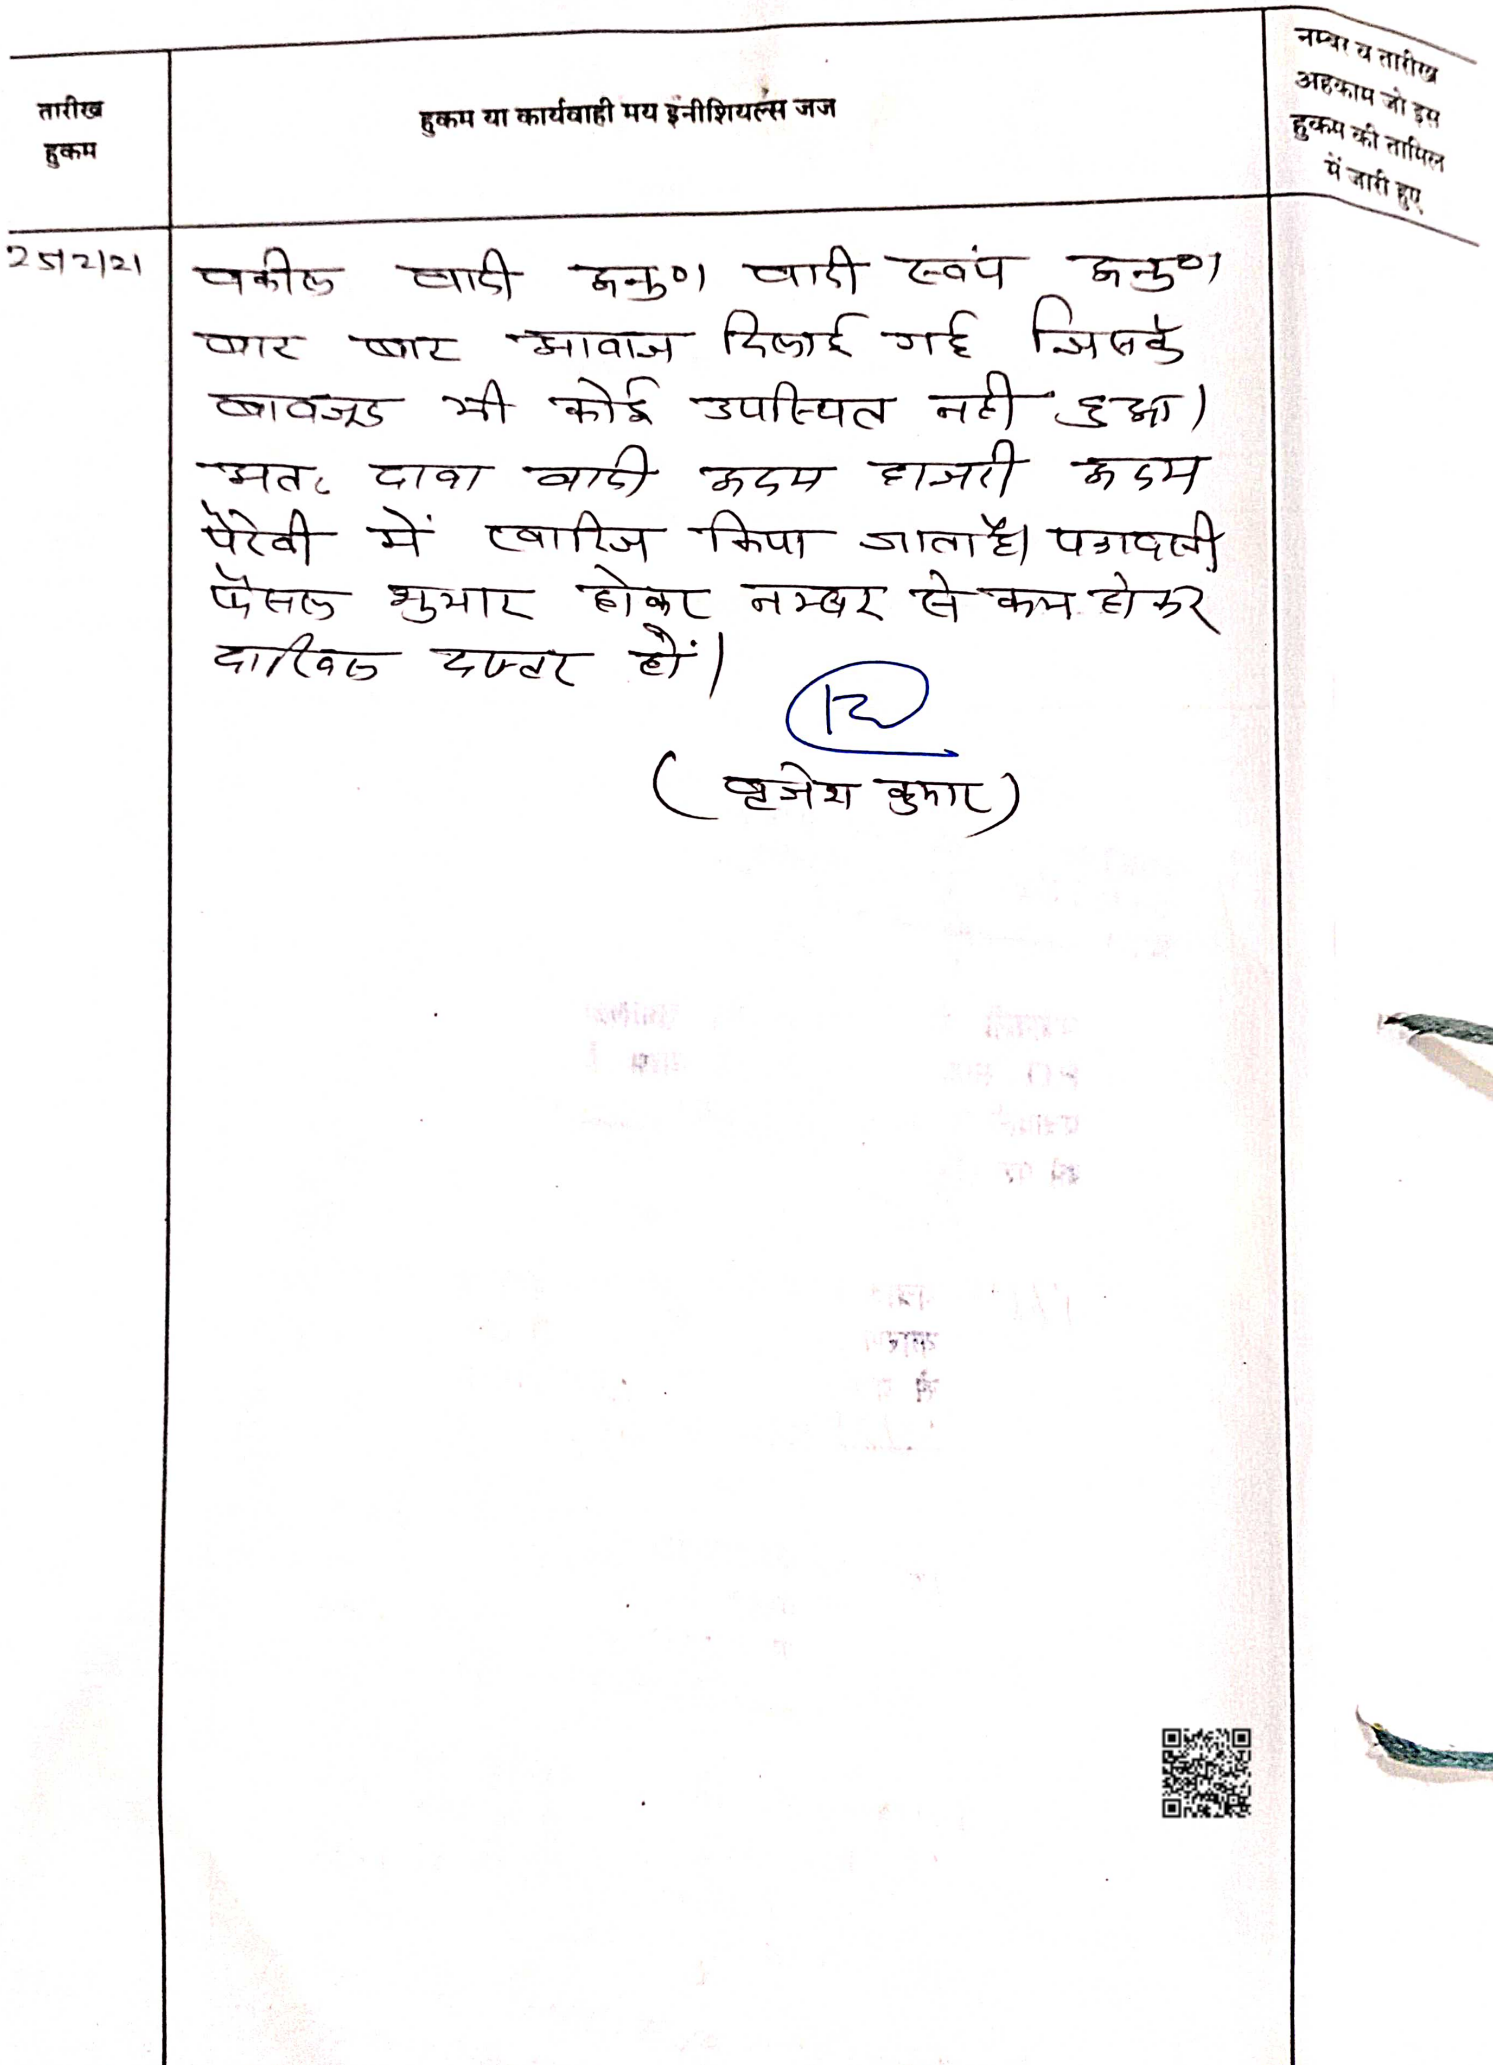 तारीख
हुकम
हुकम या कार्यवाही मय इंनीशियल्स जज
नम्बर व तारीख
अहकाम जो इस
हुकम की तामिल
में जारी हुए
25/2/21
वकील वादी अनु०। वादी स्वंय अनु०।
बार बार आवाज दिलाई गई जिसके
बावजूद भी कोई उपस्थित नही हुआ।
अतः दावा वादी अदम हाजरी अदम
पैरेवी में खारिज किया जाता है। पत्रावली
फैसल शुमार होकर नम्बर से कम होकर
दाखिल दफ्तर हों।
(बृजेश कुमार)